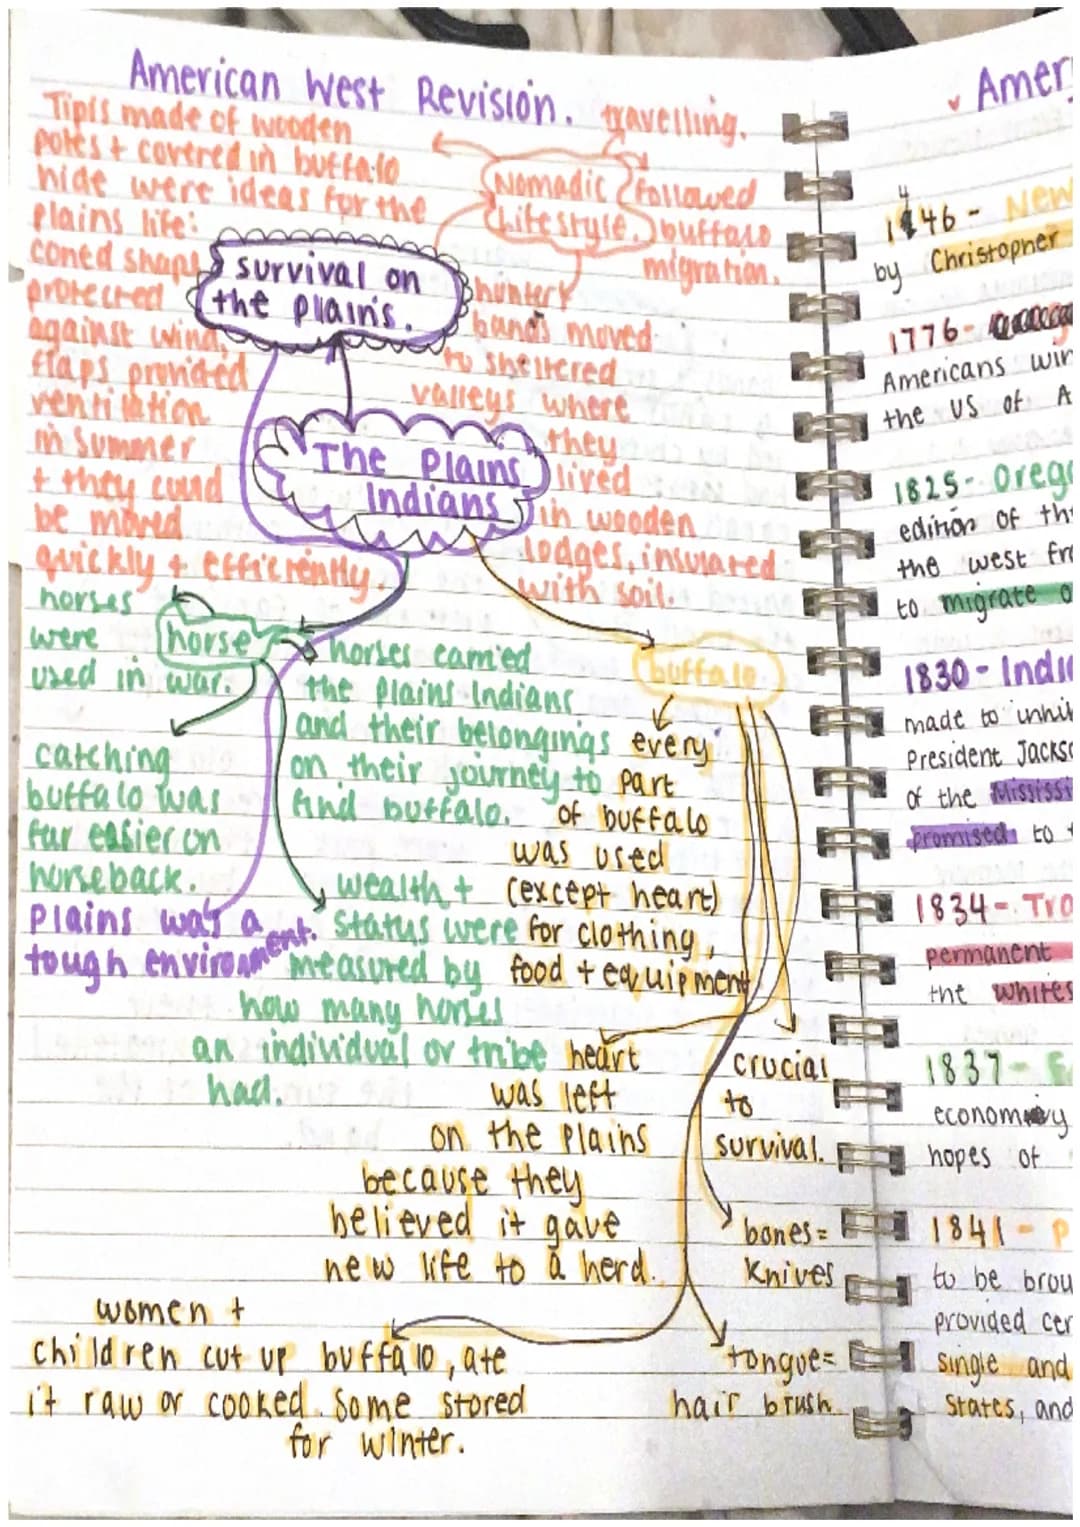 American West Revision.
Tipis made of wooden
poles + covered in buffalo
hide were ideas for the
plains life:
coned shape
protected
against wind,
flaps provided
ventilation
in summer
+ they could
be moved
quickly + efficiently.
travelling.
Nomadic
Lifestyle.
followed
buffalo
migration.
hunter
bands moved
to sheltered
valleys where
they
lived
in wooden
lodges, insurated
with soil.
survival on
the plains.
The Plains
Indians
horse
horses
were
used in war.
catching
buffalo was
far easier on
horseback.
horses carried
the plains Indians
and their belongings
on their journey to
find buffalo.
wealth +
status were
measured by
how many horses
an individual or tribe
had.
plains was a
tough environment.
buffalo
every
part
of buffalo
was used
(except heart)
for clothing,
food + equipment
heart
was left
on the plains
because they
believed it gave
new life to a herd.
crucial
to
survival.
bones=
knives
tongue=
hair brush
women +
children cut up buffalo, ate
it raw or cooked. Some stored
for winter.
Amer
1446 - New
by Christopher
1776-
Americans win
the US of A
1825- Orego
edition of th
the west fr
to migrate o
1830 - Indi
made to inhi
President Jacks
of the Mississi
promised to
1834 - Tra
permanent
the whites
1837 -
economy
hopes of
1841 - P
to be brou
provided cer
single and
States, and